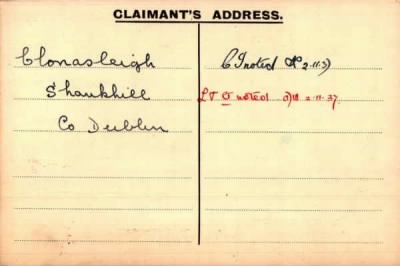 CLAIMANT'S ADDRESS.
Clonasleigh
Shankhill
Co Dublin
noted 2.11.37
noted 11.37.